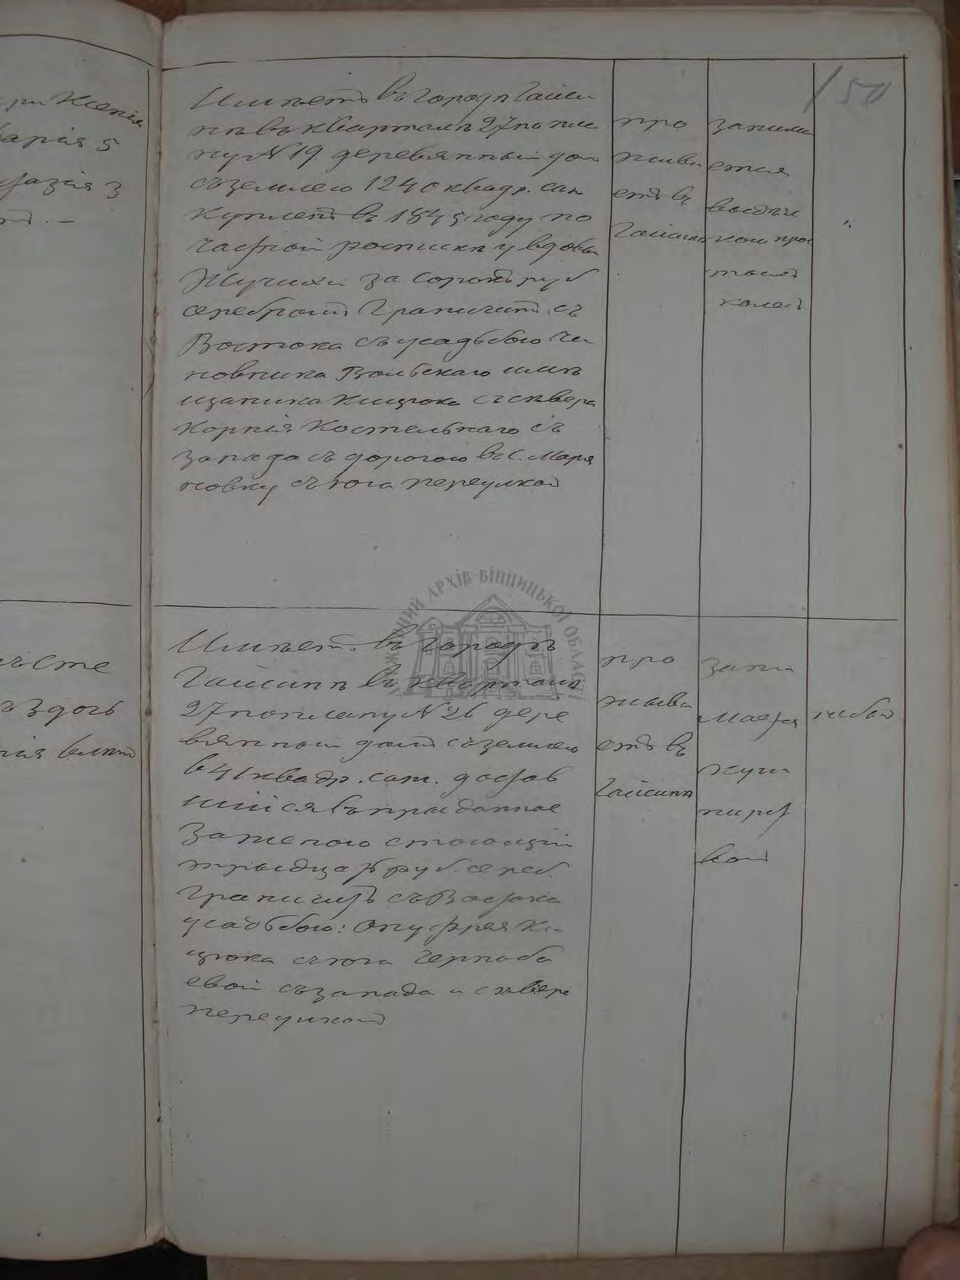 150
Имѣетъ въ городѣ Гайси
нѣ въ кварталѣ 27 по пла
ну N 19 деревянный дом
съ землею 1240 квадр. саж
купленъ въ 1845 году по
частной росписки у вдовы
за сорокъ руб
серебромъ Граничитъ съ
Востока съ усадьбою Чи
новника Вольскаго имѣ
щанина Кицюка съ сквера
Корнія Костельнаго съ
запада съ дорогою въ С. Марія
новку съ юга переулкомъ
про
жива
етъ въ
Гайсинѣ
занима
ется
выдѣл
кою прос
тыхъ
колесъ
Имѣетъ въ городѣ
Гайсинѣ въ кварталѣ
27 по плану N 26 дере
вянный домъ съ землею
841 квадр. саж. достав
шійся въ приданное
За женою стоющій
тридцать руб. сереб.
Граничитъ съ Востока
усадьбою: Онуфрея Ки
цюка съ юга Черноба
евой съ запада и с сквера
переулкомъ
про
жыва
етъ въ
Гайсинѣ
зани
мается
АРХІВ ВІННИЦЬКОЇ ОБЛАСТІ